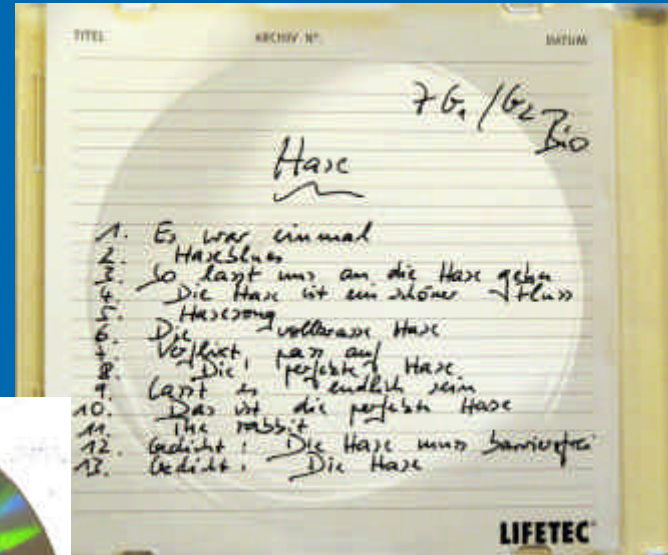 TITEL ARCHIV N°. DATUM
7G1/G2
Bio
Hase
1. Es war einmal
2. Haseblues
3. So lasst uns an die Hase gehn
4. Die Hase ist ein schöner Fluss
5. Hasesong
6. Die vollkrasse Hase
7. Verflixt, pass auf
8. Die perfekte Hase
9. Lasst es endlich sein
10. Das ist die perfekte Hase
11. The rabbit
12. Gedicht: Die Hase muss barrierefrei
13. Gedicht: Die Hase
LIFETEC